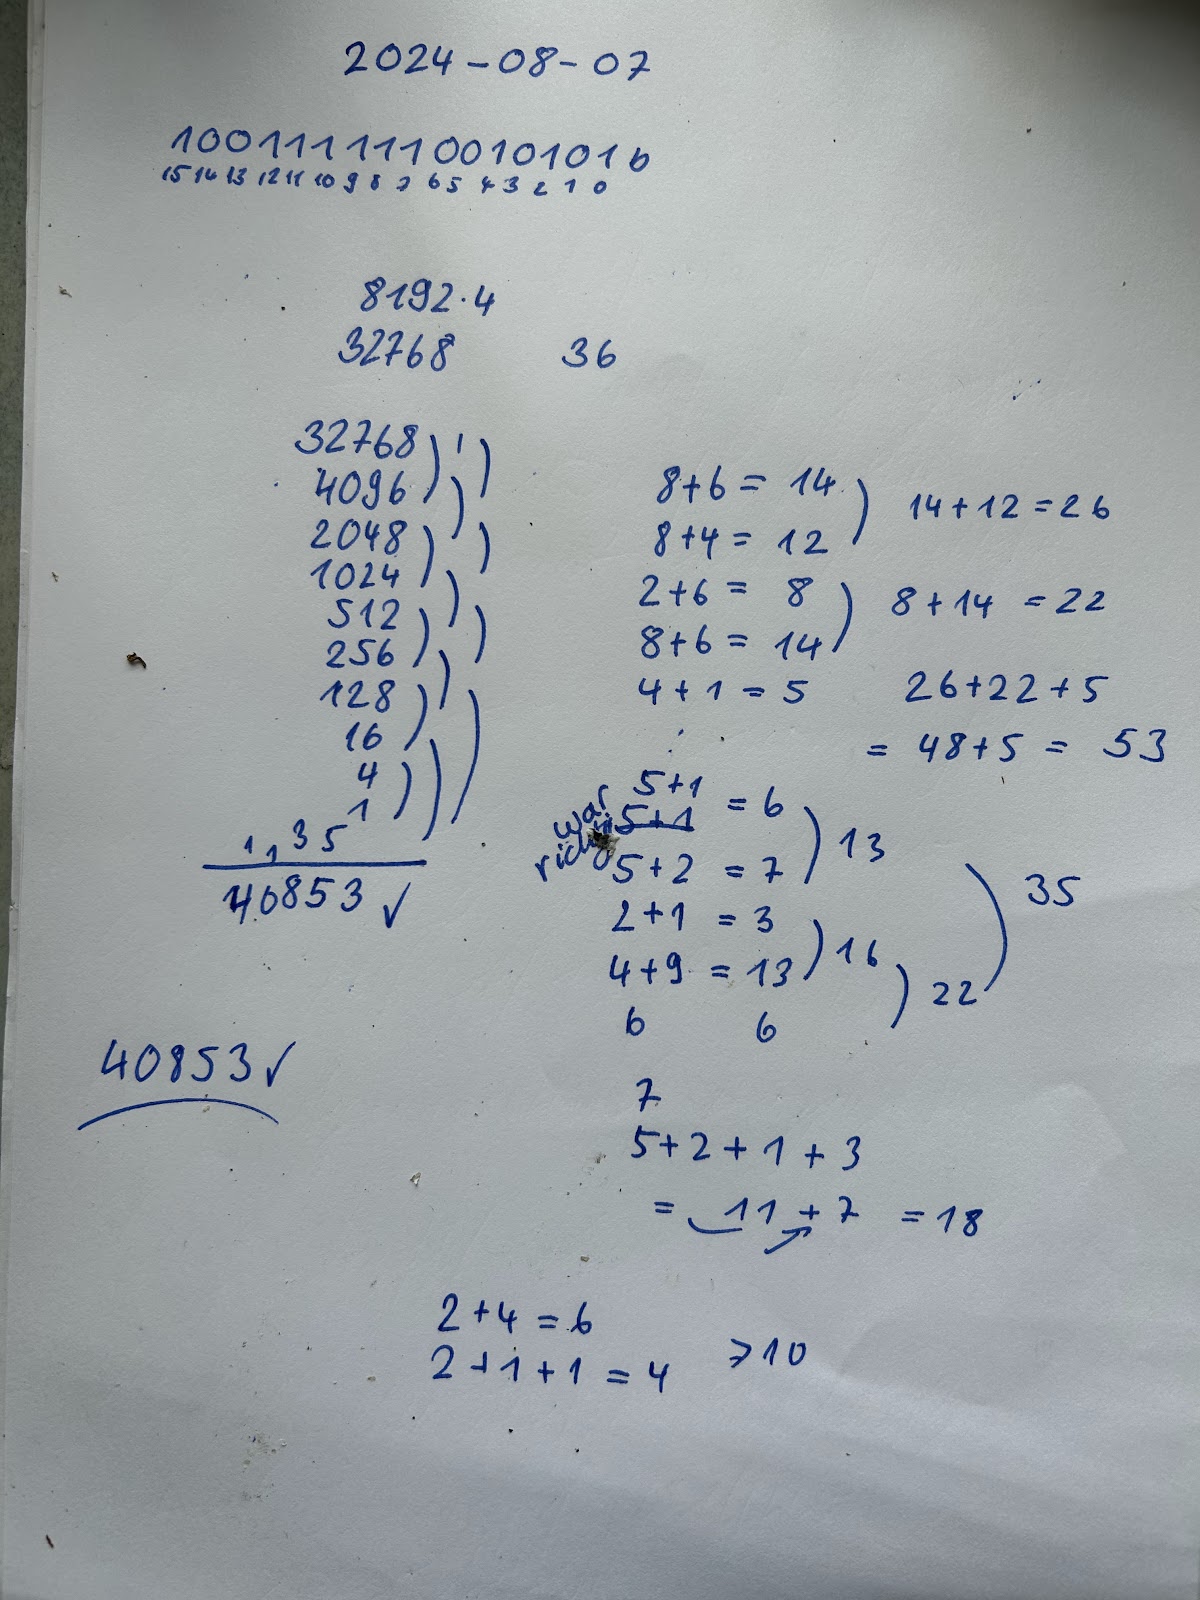 2024-08-07
1001111110010101b
15 14 13 12 11 10 9 8 7 6 5 4 3 2 1 0
8192·4
32768 36
32768
4096
2048
1024
512
256
128
16
4
1
1,135
40853 ✓
40853 ✓
8+6 = 14 ) 14+12=26
8+4 = 12
2+6 = 8 ) 8+14 = 22
8+6 = 14
4+1 = 5 26+22+5
= 48+5 = 53
5+1 = 6 ) 13
war richtig 5+1
5+2 = 7
2+1 = 3 ) 16 ) 35
4+9 = 13 ) 22
6 6
7
5+2+1+3
= 11 + 7 = 18
2+4 = 6
2+1+1 = 4 >10